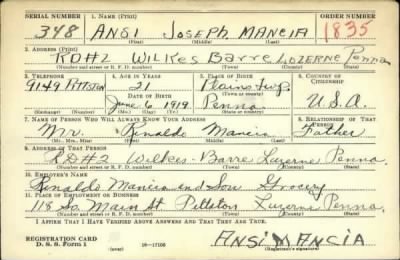 SERIAL NUMBER 1. NAME (Print) ORDER NUMBER
348 ANSI JOSEPH MANCIA 1835
(First) (Middle) (Last)
2. ADDRESS (Print)
RD#2 WILKES BARRE LUZERNE Penna
(Number and street or R. F. D. number) (Town) (County) (State)
3. TELEPHONE 4. AGE IN YEARS 5. PLACE OF BIRTH 6. COUNTRY OF CITIZENSHIP
9149 Pittston 21 Plains Twp. 
DATE OF BIRTH
June 6 1919 Penna U.S.A.
(Mo.) (Day) (Yr.) (State or country)
7. NAME OF PERSON WHO WILL ALWAYS KNOW YOUR ADDRESS 8. RELATIONSHIP OF THAT PERSON
Mr. Rinaldo Mancia Father
(Mr., Mrs., Miss) (First) (Middle) (Last)
9. ADDRESS OF THAT PERSON
RD#2 Wilkes-Barre Luzerne Penna
(Number and street or R. F. D. number) (Town) (County) (State)
10. EMPLOYER'S NAME
Rinaldo Mancia and Son Grocery
11. PLACE OF EMPLOYMENT OR BUSINESS
118 So. Main St. Pittston Luzerne Penna.
(Number and street or R. F. D. number) (Town) (County) (State)
I AFFIRM THAT I HAVE VERIFIED ABOVE ANSWERS AND THAT THEY ARE TRUE.
REGISTRATION CARD
D. S. S. Form 1 (over) 16—17105 ANSI MANCIA
(Registrant's signature)